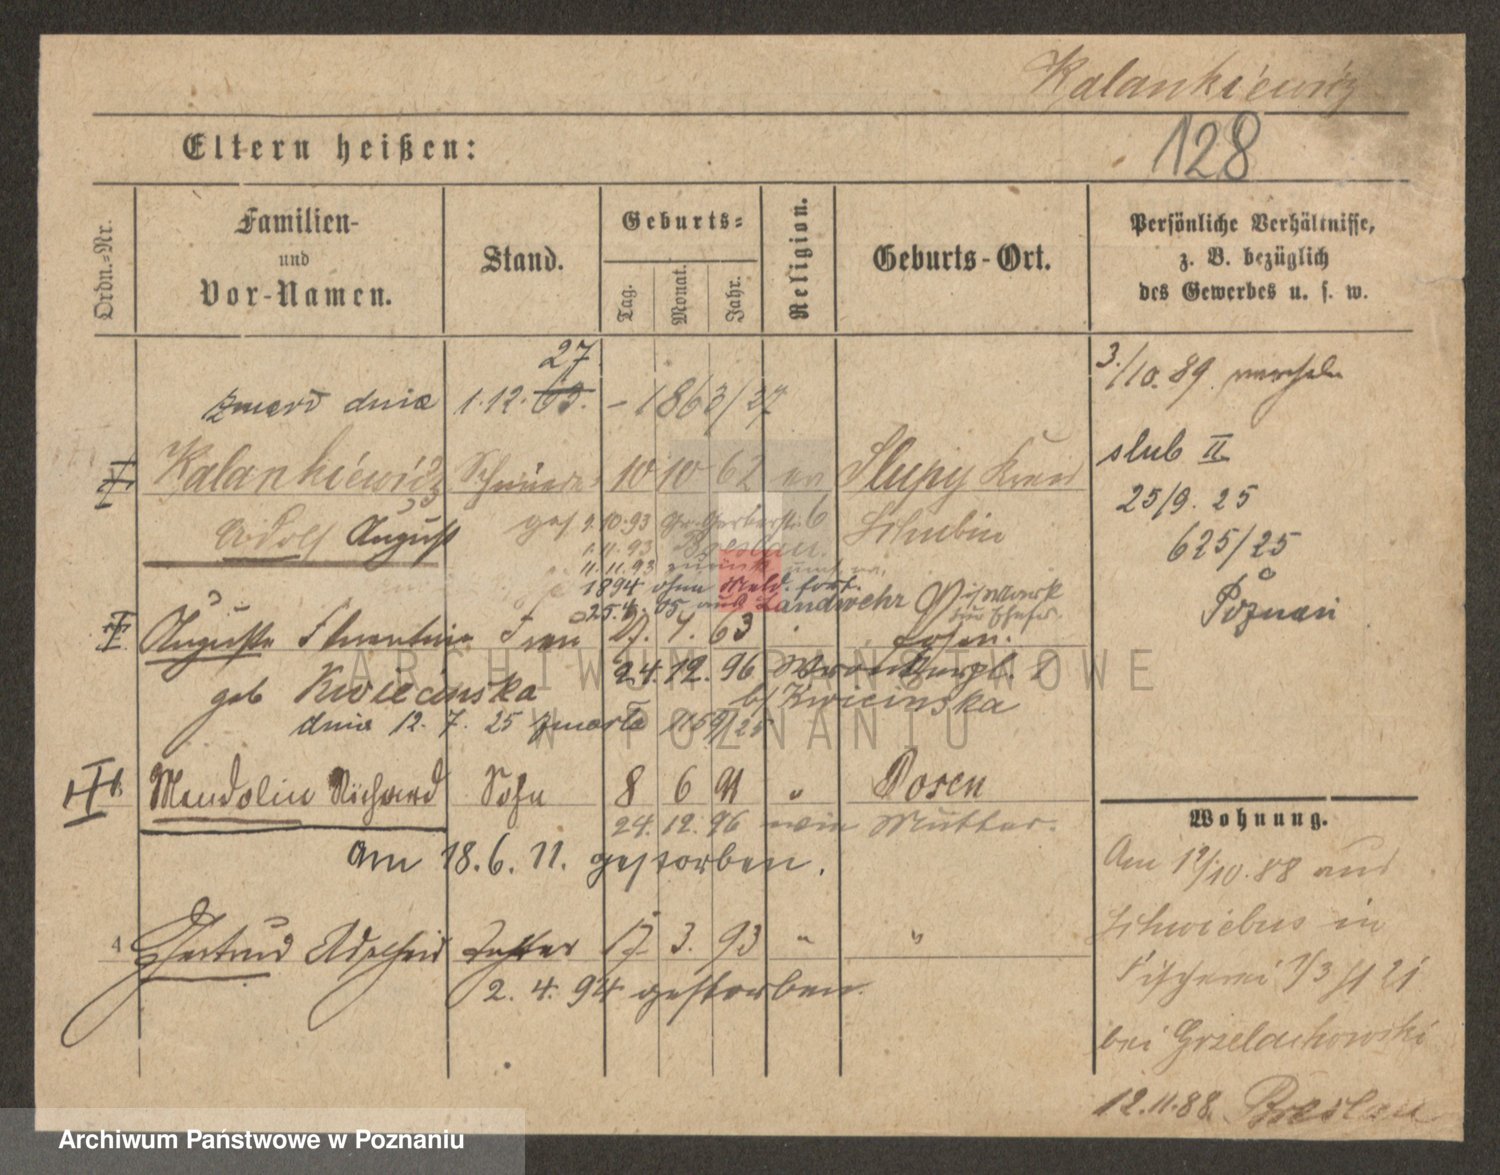 Kalankiewicz
128
Eltern heißen:
Ordn.-Nr.
Familien-
und
Vor-Namen.
Stand.
Geburts-
Tag.
Monat.
Jahr.
Religion.
Geburts-Ort.
Persönliche Verhältnisse,
z. B. bezüglich
des Gewerbes u. s. w.
27.
zmarł dnia 1.12. 63. - 1863/27
3./10. 89.
Kalankiewicz 10 10 62 Slupy Kreis
Adolf August Schubin
ślub II
25/9. 25
625/25
Poznań
9.10.93 Gr. Gerberstr. 6
1.11.93 Breslau.
11.11.93 zurück
1894 ohne Meld. fort.
25.4.05 aus Landwehr
Auguste Florentine Frau 27. 7. 63 Posen.
geb Kwiecinska 24. 12. 96
b/ Kwiecinska
dnia 12. 7. 25 zmarła 1159/25
Mendolin Richard Sohn 8 6 91 " Posen
24. 12. 96 wie Mutter.
am 18. 6. 11. gestorben.
4 Gertrud Adelheid Tochter 17. 3. 93 " "
2. 4. 94 gestorben.
Wohnung.
Am 19/10. 88 aus
Schwiebus in
Fischerei
bei Grzelachowski
12.11.88. Breslau
ARCHIWUM PAŃSTWOWE
W POZNANIU
Archiwum Państwowe w Poznaniu